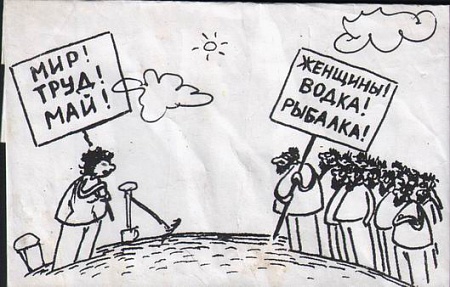 МИР!
ТРУД!
МАЙ!
ЖЕНЩИНЫ!
ВОДКА!
РЫБАЛКА!